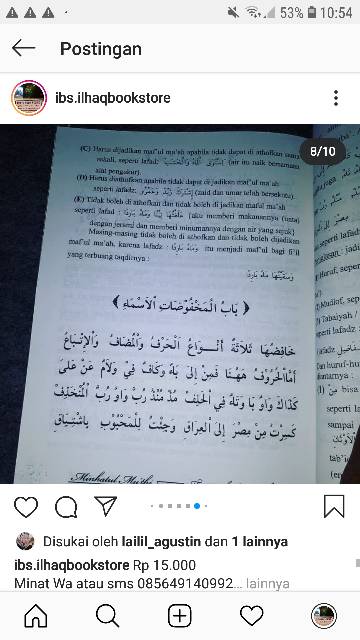 53% 10:54
Postingan
ibs.ilhaqbookstore
8/10
(C) Harus dijadikan maf'ul ma'ah apabila tidak dapat di athofkan sama
sekali, seperti lafadz: (air itu naik bersamaan
alat pengukur).
(D) Harus diathofkan apabila tidak dapat di jadikan maf'ul ma'ah
seperti lafadz: (zaid dan umar telah bersekutu).
(E) Tidak boleh di athofkan dan tidak boleh di jadikan maful ma'ah
seperti lafad : (aku memberi makanannya (unta)
dengan jerami dan memberi minumannya dengan air yang sejuk)
Masing-masing tidak boleh di athofkan dan tidak boleh dijadikan
maf'ul ma'ah, karena lafadz : itu menjadi maf'ul bagi fi'il
yang terbuang taqdirnya :
وَسَقَيْتُهَا مَاءً بَارِدًا
﴿ بَابُ الْمَخْفُوْضَاتِ الْاَسْمَاءِ ﴾
خَافِضُهَا ثَلَاثَةٌ أَنْوَاعُ الْحَرْفُ وَالْمُضَافُ وَالْإِتْبَاعُ
أَمَّا الْحُرُوْفُ هَهُنَا فَمِنْ إِلَى بَاءٌ وَكَافٌ فِيْ وَلَامٌ عَنْ عَلَى
كَذَاكَ وَاوٌ بَا وَتَاءٌ فِي الْحَلِفْ مُذْ مُنْذُ رُبَّ وَاوُ رُبَّ الْمُنْحَذِفْ
كَسِرْتُ مِنْ مِصْرَ إِلَى الْعِرَاقِ وَجِئْتُ لِلْمَحْبُوْبِ بِاشْتِيَاقِ
Disukai oleh lailil_agustin dan 1 lainnya
ibs.ilhaqbookstore Rp 15.000
Minat Wa atau sms 085649140992... lainnya